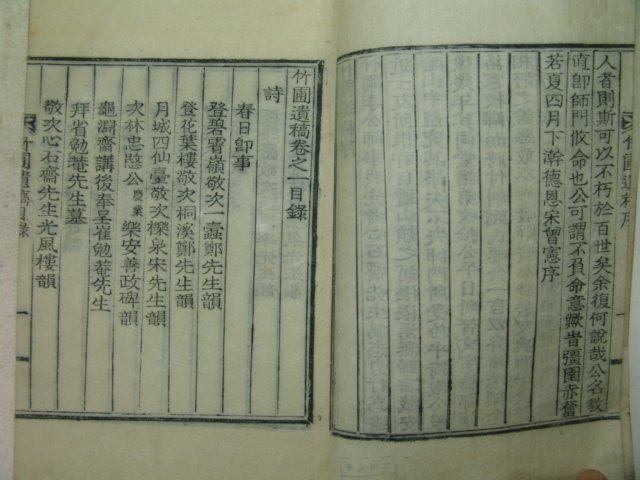 人者則斯可以不朽於百世矣余復何說哉公名載
直卽師門攸命也公可謂不負命意歟昔彊圉赤奮
若夏四月下澣德恩宋曾憲序
竹圃遺稿序
竹圃遺稿卷之一目錄
詩
春日卽事
登碧霄嶺敬次一蠹鄭先生韻
登花葉樓敬次桐溪鄭先生韻
月城四仙臺敬次櫟泉宋先生韻
次林忠愍公慶業樂安善政碑韻
龜淵齋講後奉呈崔勉菴先生
拜省勉菴先生墓
敬次心石齋先生光風樓韻
竹圃遺稿目錄
一